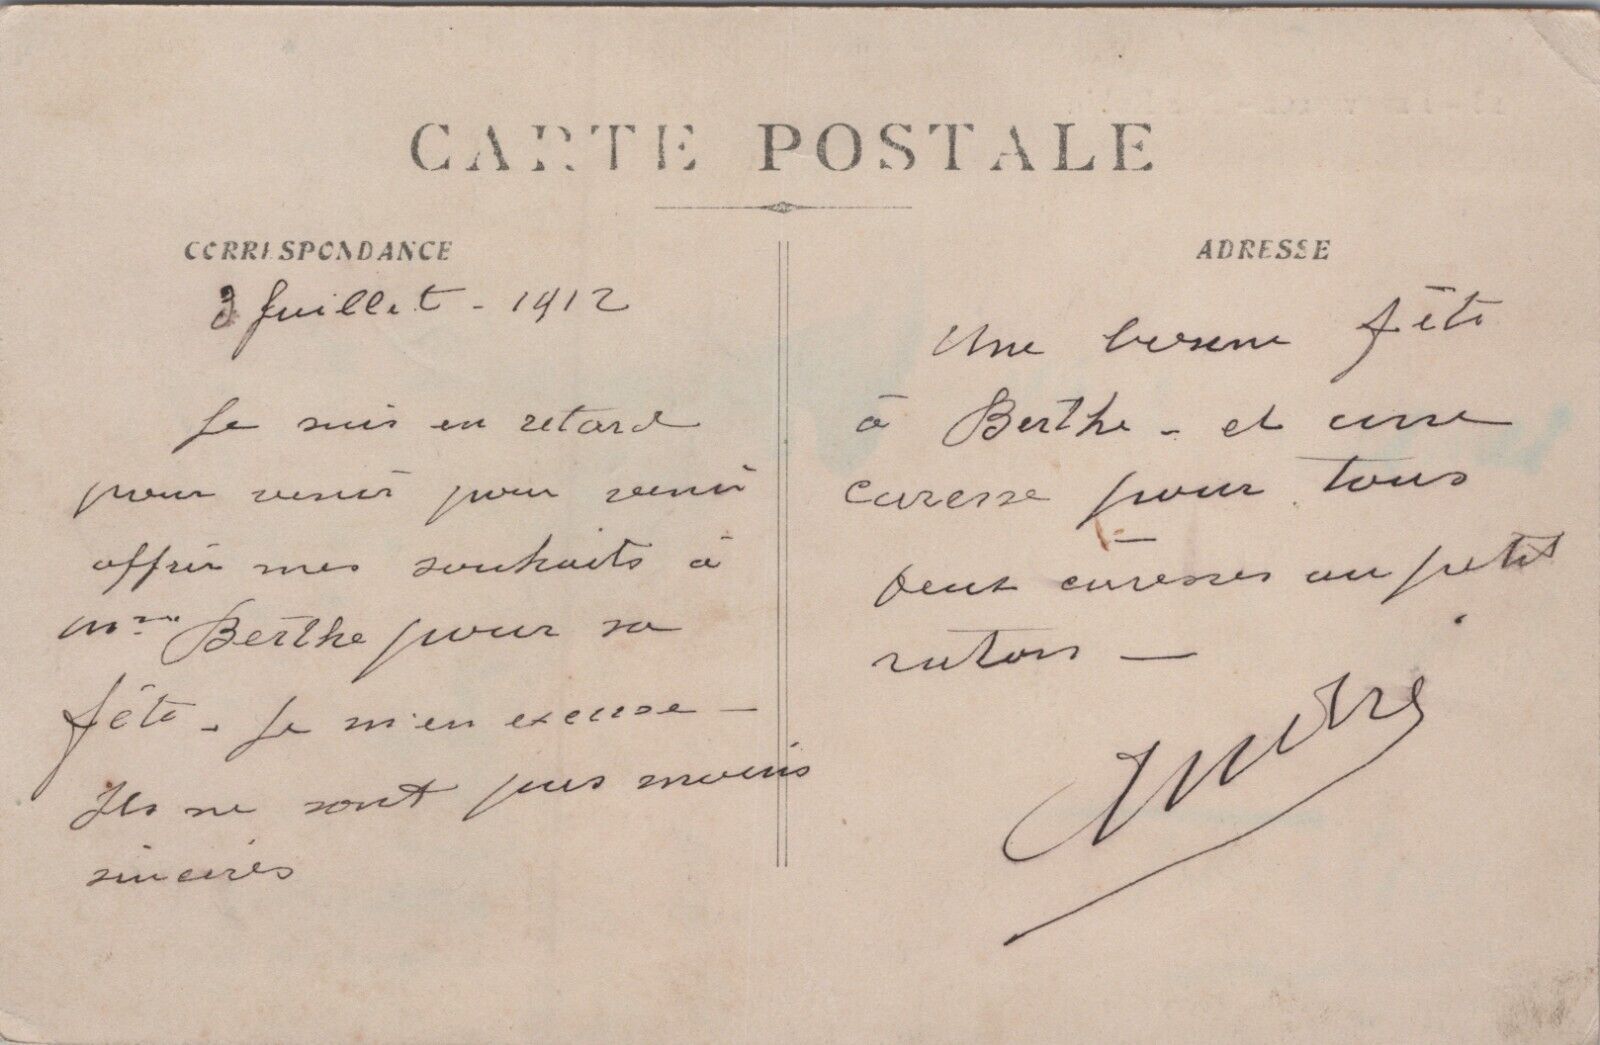 CARTE POSTALE
CORRESPONDANCE
3 Juillet - 1912
Je suis en retard
pour venir pour venir
offrir mes souhaits à
Mme Berthe pour sa
fête - Je m'en excuse -
Ils ne sont pas moins
sincères
ADRESSE
Une bonne fête
à Berthe - et une
caresse pour tous
deux caresses au petit
raton -